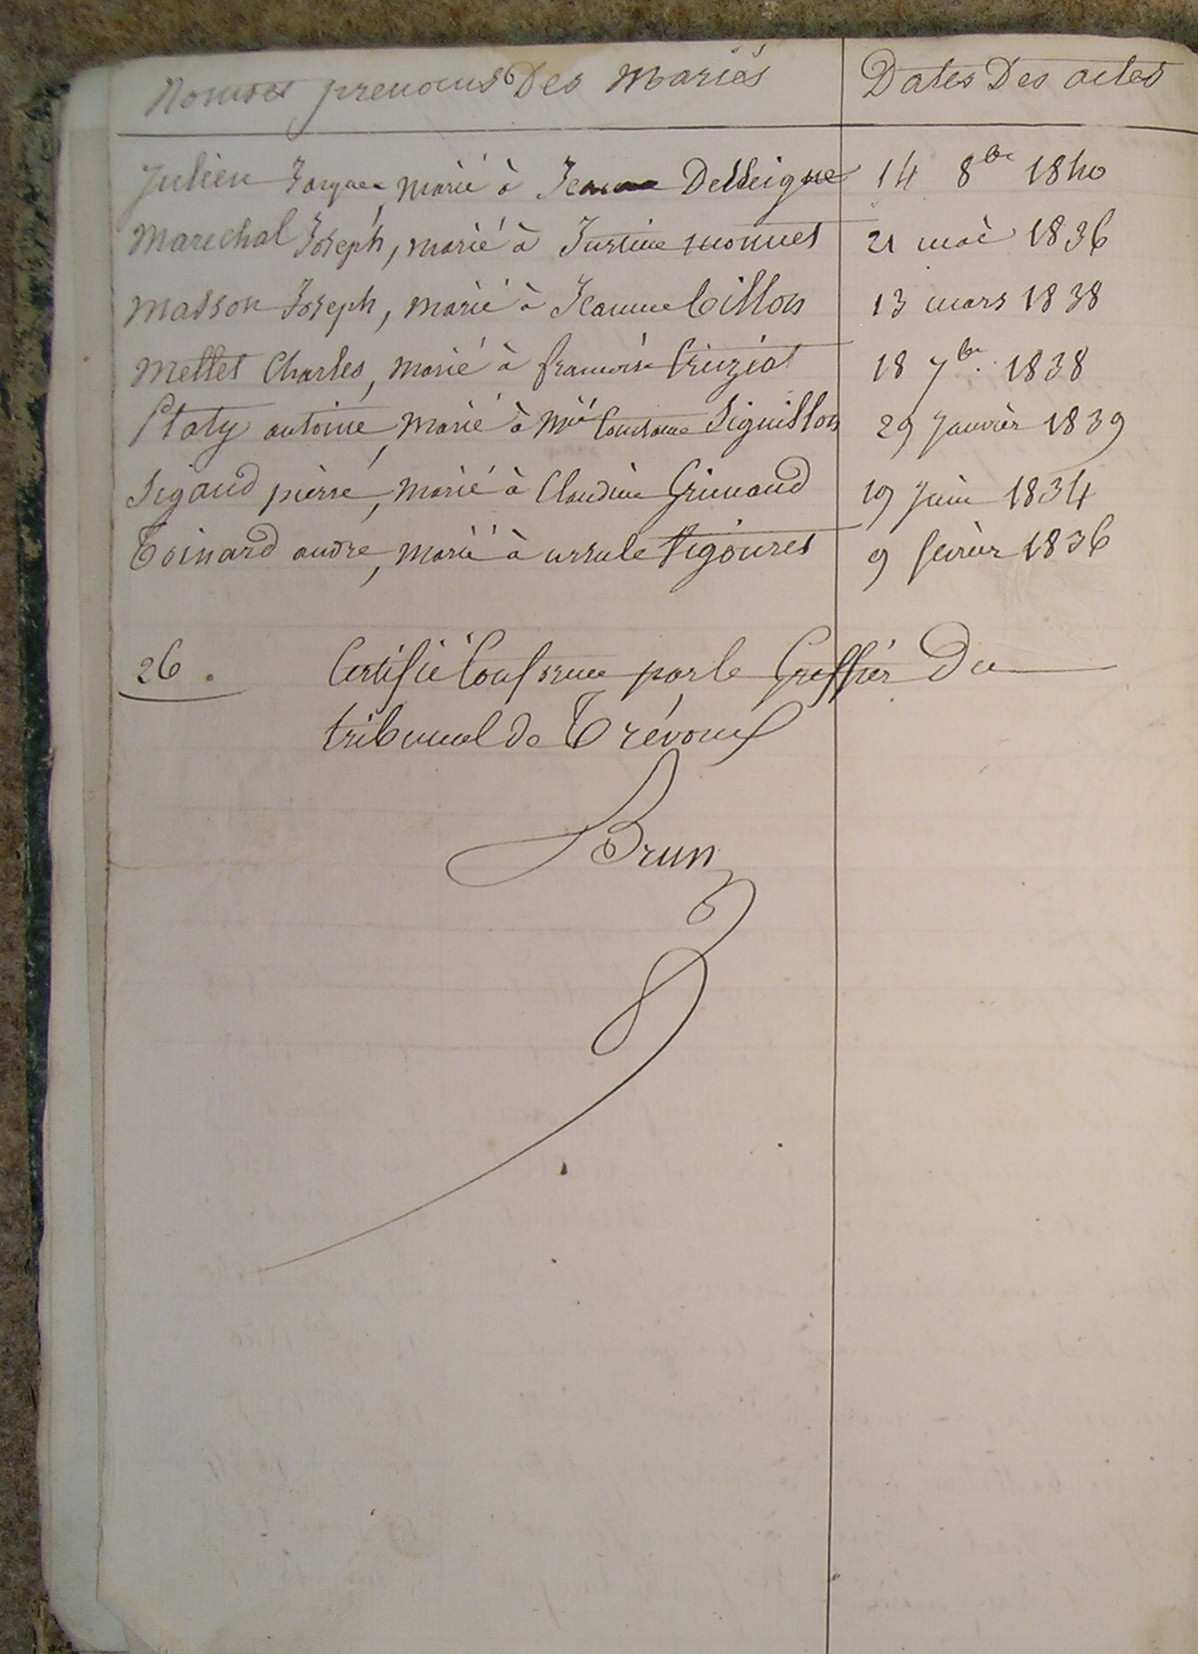 Noms et prenoms Des Mariés Dates Des actes
Julien Jacques, marié à Jeanne Delleigne 14 8bre 1840
Marechal Joseph, marié à Justine monnet 21 mai 1836
Masson Joseph, marié à Jeanne Cillon 13 mars 1838
Mettet Charles, marié à francoise Cruziat 18 7bre 1838
Platy antoine, marié à Mie Constance Siguillon 29 Janvier 1839
Sigaud pierre, marié à Claudine Grimaud 19 Juin 1834
Toinard andre, marié à ursule Vigouret 9 février 1836
26. Certifié Conforme par le Greffier Du
tribunal de Trévoux
Brun